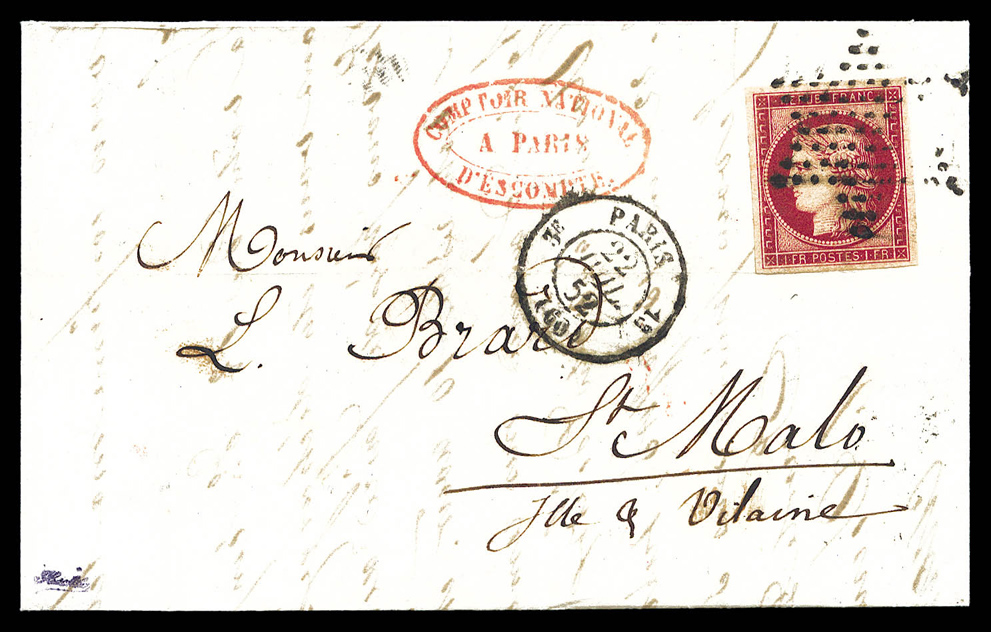 COMPTOIR NATIONAL
A PARIS
D'ESCOMPTE.
REPUB FRANC
1 FR POSTES 1 FR
PARIS
3E
22
JUIL
52
(60)
Monsieur
L. Brard
St Malo
Ille & Vilaine